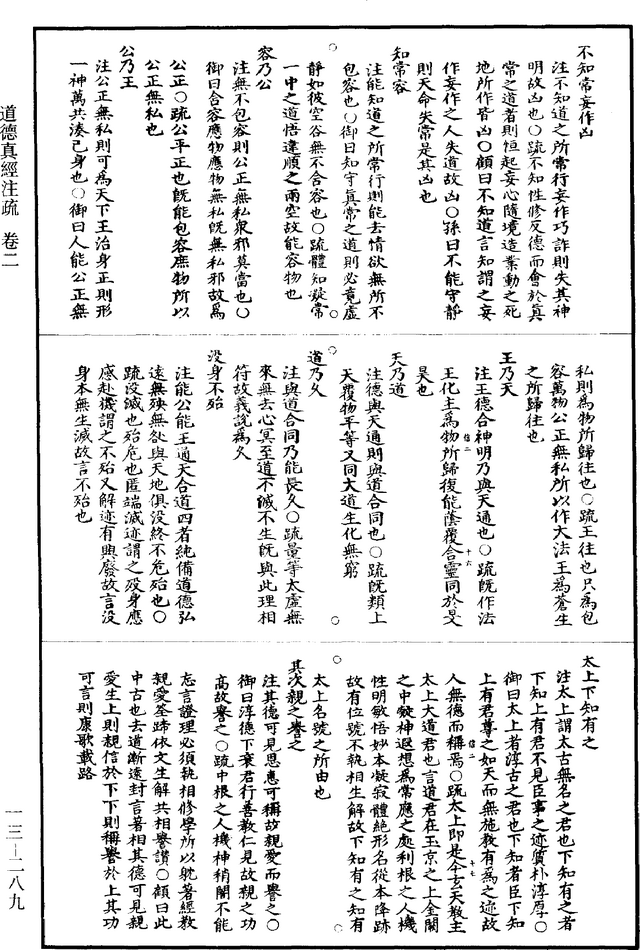 道德真經注疏　卷二
一三—二八九
不知常妄作凶
注不知道之所常行妄作巧詐則失其神
明故凶也○疏不知性修反德而會於真
常之道者則恒起妄心隨境造業動之死
地所作皆凶○顧曰不知道言知謂之妄
作妄作之人失道故凶○孫曰不能守靜
則天命失常是其凶也
知常容
注能知道之所常行則能去情欲無所不
包容也○御曰知守真常之道則必竟虛
靜如彼空谷無不含容也○疏體知凝常
一中之道悟違順之兩空故能容物也
容乃公
注無不包容則公正無私眾邪莫當也○
御曰含容應物應物無私既無私邪故為
公正○疏公平正也既能包容庶物所以
公正無私也
公乃王
注公正無私則可為天下王治身正則形
一神萬共湊己身也○御曰人能公正無
私則為物所歸往也○疏王往也只為包
容萬物公正無私所以作大法王為蒼生
之所歸往也
王乃天
注王德合神明乃與天通也○疏既作法
王化主為物所歸復能蔭覆含靈同於旻
昊也
天乃道
注德與天通則與道合同也○疏既類上
天覆物平等又同大道生化無窮
道乃久
注與道合同乃能長久○疏量等太虛無
來無去心冥至道不滅不生既與此理相
符故義說為久
沒身不殆
注能公能王通天合道四者純備道德弘
遠無殃無欲與天地俱沒終不危殆也○
疏沒滅也殆危也匿端滅迹謂之歿身應
感赴機謂之不殆又解迹有興廢故言沒
身本無生滅故言不殆也
太上下知有之
注太上謂太古無名之君也下知有之者
下知上有君不見臣事之迹質朴淳厚○
御曰太上者淳古之君也下知者臣下知
上有君尊之如天而無施教有為之迹故
人無德而稱焉○疏太上即是今玄天教主
太上大道君也言道君在玉京之上金闕
之中凝神遐想為常應之處利根之人機
性明敏悟妙本凝寂體絕形名從本降跡
故有位號不執相生解故下知有之知有
太上名號之所由也
其次親之譽之
注其德可見恩惠可稱故親愛而譽之○
御曰淳德下衰君行善教仁見故親之功
高故譽之○疏中根之人機神稍闇不能
忘言證理必須執相修學所以躭著經教
親愛筌蹄依文生解共相譽讚○顧曰此
中古也去道漸遠封言著相其德可見親
愛生上則親信於下下則稱譽於上其功
可言則康歌載路